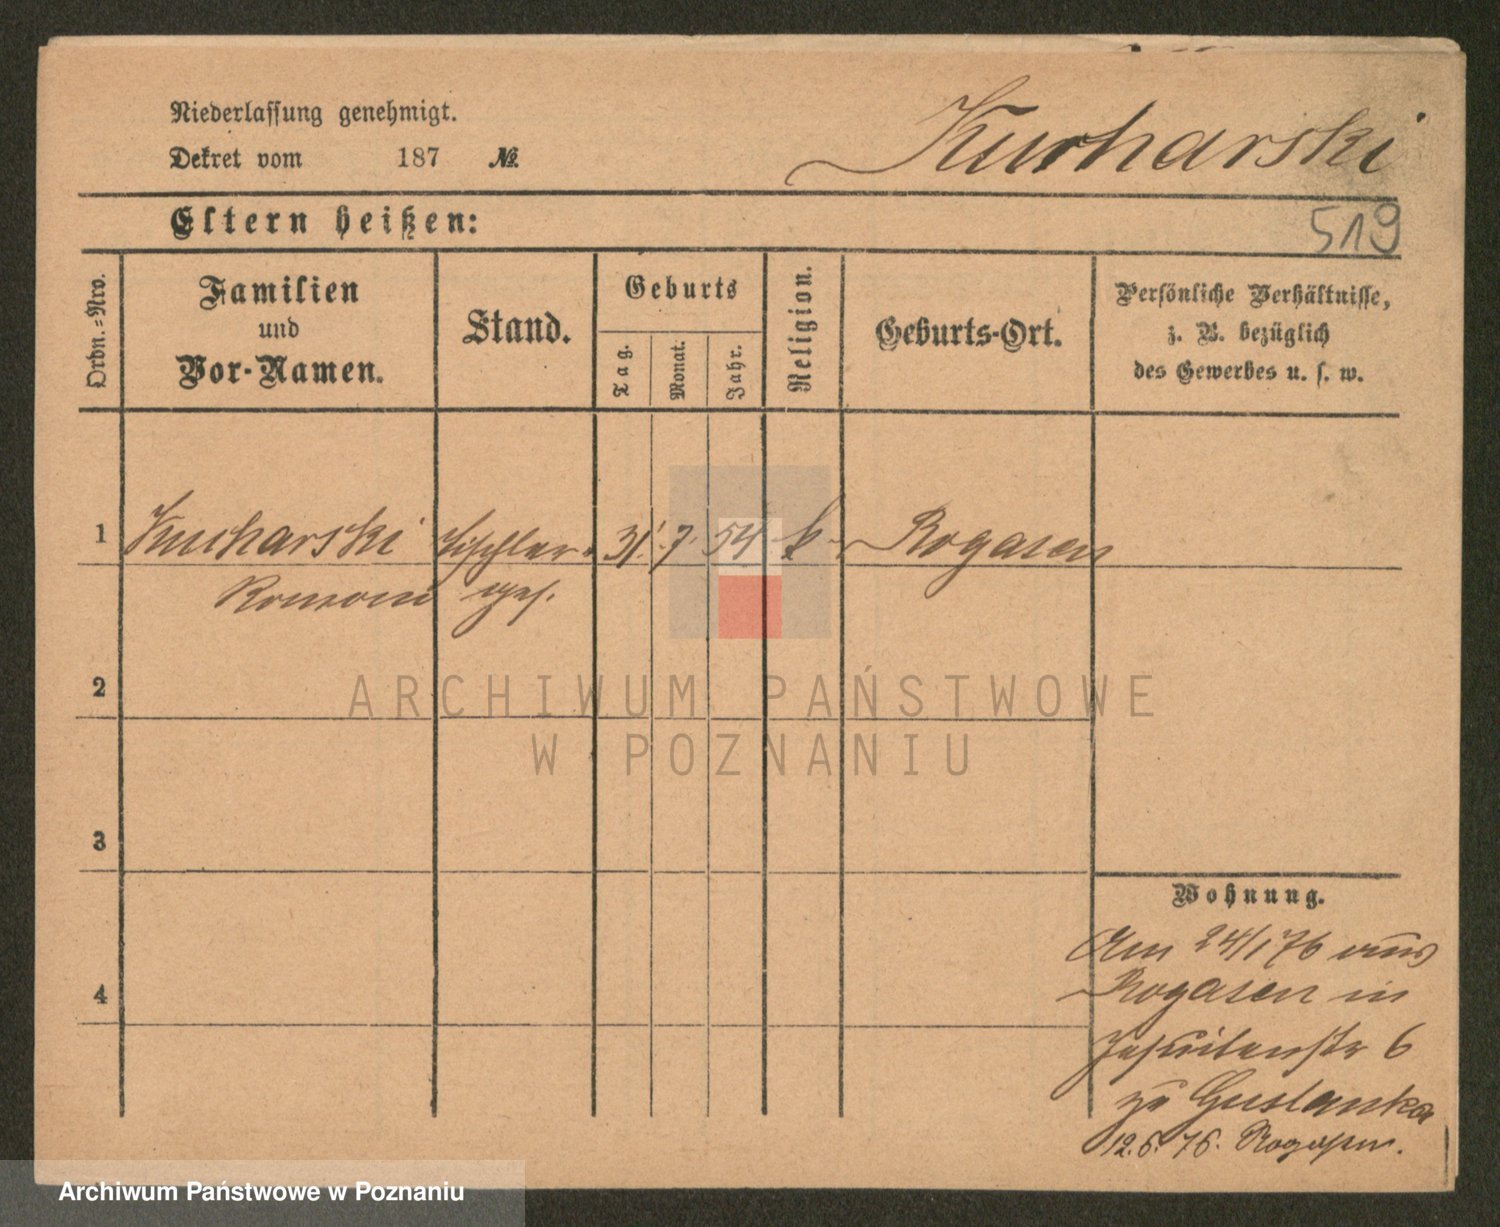 Niederlassung genehmigt.
Dekret vom 187 №
Kucharski
Eltern heißen:
519
Ordn.=Nro.
Familien
und
Vor-Namen.
Stand.
Geburts
Tag.
Monat.
Jahr.
Religion.
Geburts-Ort.
Persönliche Verhältnisse,
z. B. bezüglich
des Gewerbes u. s. w.
1 Kucharski Tischler 31. 7. 54 k. Rogasen
Roman ges.
2
3
4
Wohnung.
Am 24/1 76 aus
Rogasen in
Jesuitenstr 6
zu Guslanka
12.6.76. Rogasen.
ARCHIWUM PAŃSTWOWE
W POZNANIU
Archiwum Państwowe w Poznaniu